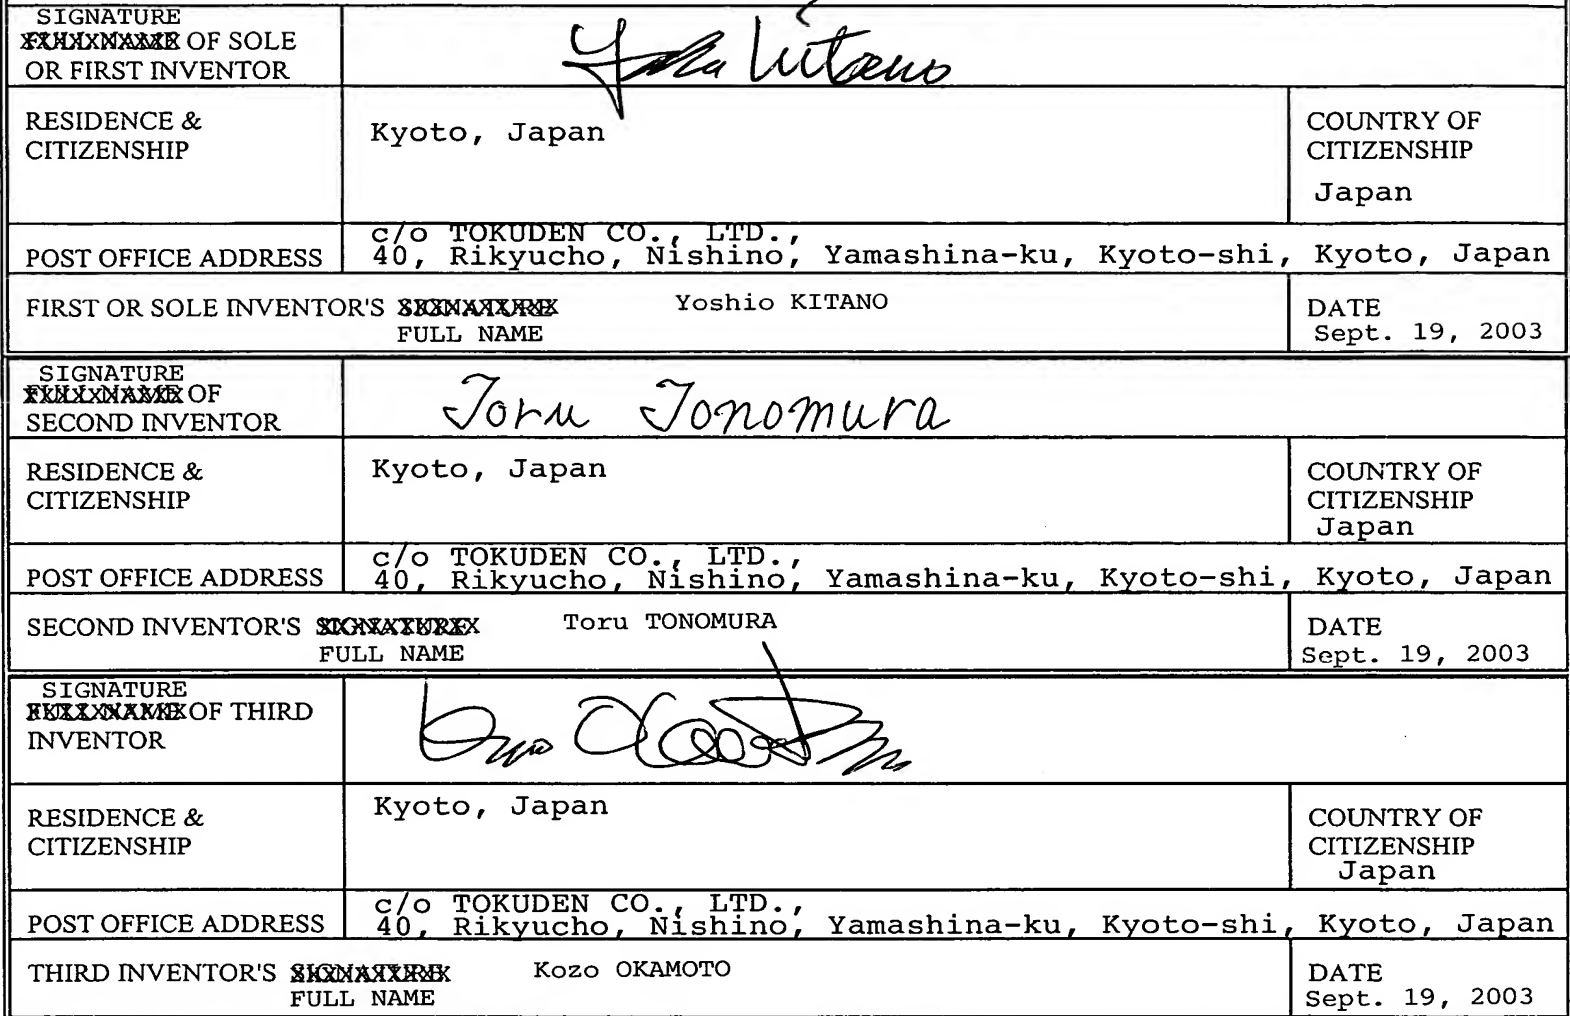 SIGNATURE
OF SOLE
OR FIRST INVENTOR
Kitano
RESIDENCE &
CITIZENSHIP
Kyoto, Japan
COUNTRY OF
CITIZENSHIP
Japan
POST OFFICE ADDRESS
c/o TOKUDEN CO., LTD.,
40, Rikyucho, Nishino, Yamashina-ku, Kyoto-shi, Kyoto, Japan
FIRST OR SOLE INVENTOR'S SIGNATURE Yoshio KITANO
FULL NAME
DATE
Sept. 19, 2003
SIGNATURE
FULL NAME OF
SECOND INVENTOR
Toru Tonomura
RESIDENCE &
CITIZENSHIP
Kyoto, Japan
COUNTRY OF
CITIZENSHIP
Japan
POST OFFICE ADDRESS
c/o TOKUDEN CO., LTD.,
40, Rikyucho, Nishino, Yamashina-ku, Kyoto-shi, Kyoto, Japan
SECOND INVENTOR'S SIGNATURE Toru TONOMURA
FULL NAME
DATE
Sept. 19, 2003
SIGNATURE
FULL NAME OF THIRD
INVENTOR
RESIDENCE &
CITIZENSHIP
Kyoto, Japan
COUNTRY OF
CITIZENSHIP
Japan
POST OFFICE ADDRESS
c/o TOKUDEN CO., LTD.,
40, Rikyucho, Nishino, Yamashina-ku, Kyoto-shi, Kyoto, Japan
THIRD INVENTOR'S SIGNATURE Kozo OKAMOTO
FULL NAME
DATE
Sept. 19, 2003